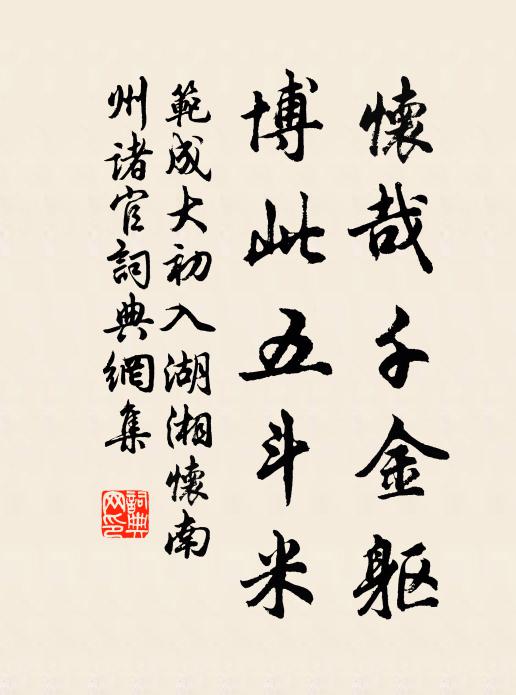 懷哉千金軀
博此五斗米
範成大初入湖湘懷南
州諸官詞典網集
詞典
网印